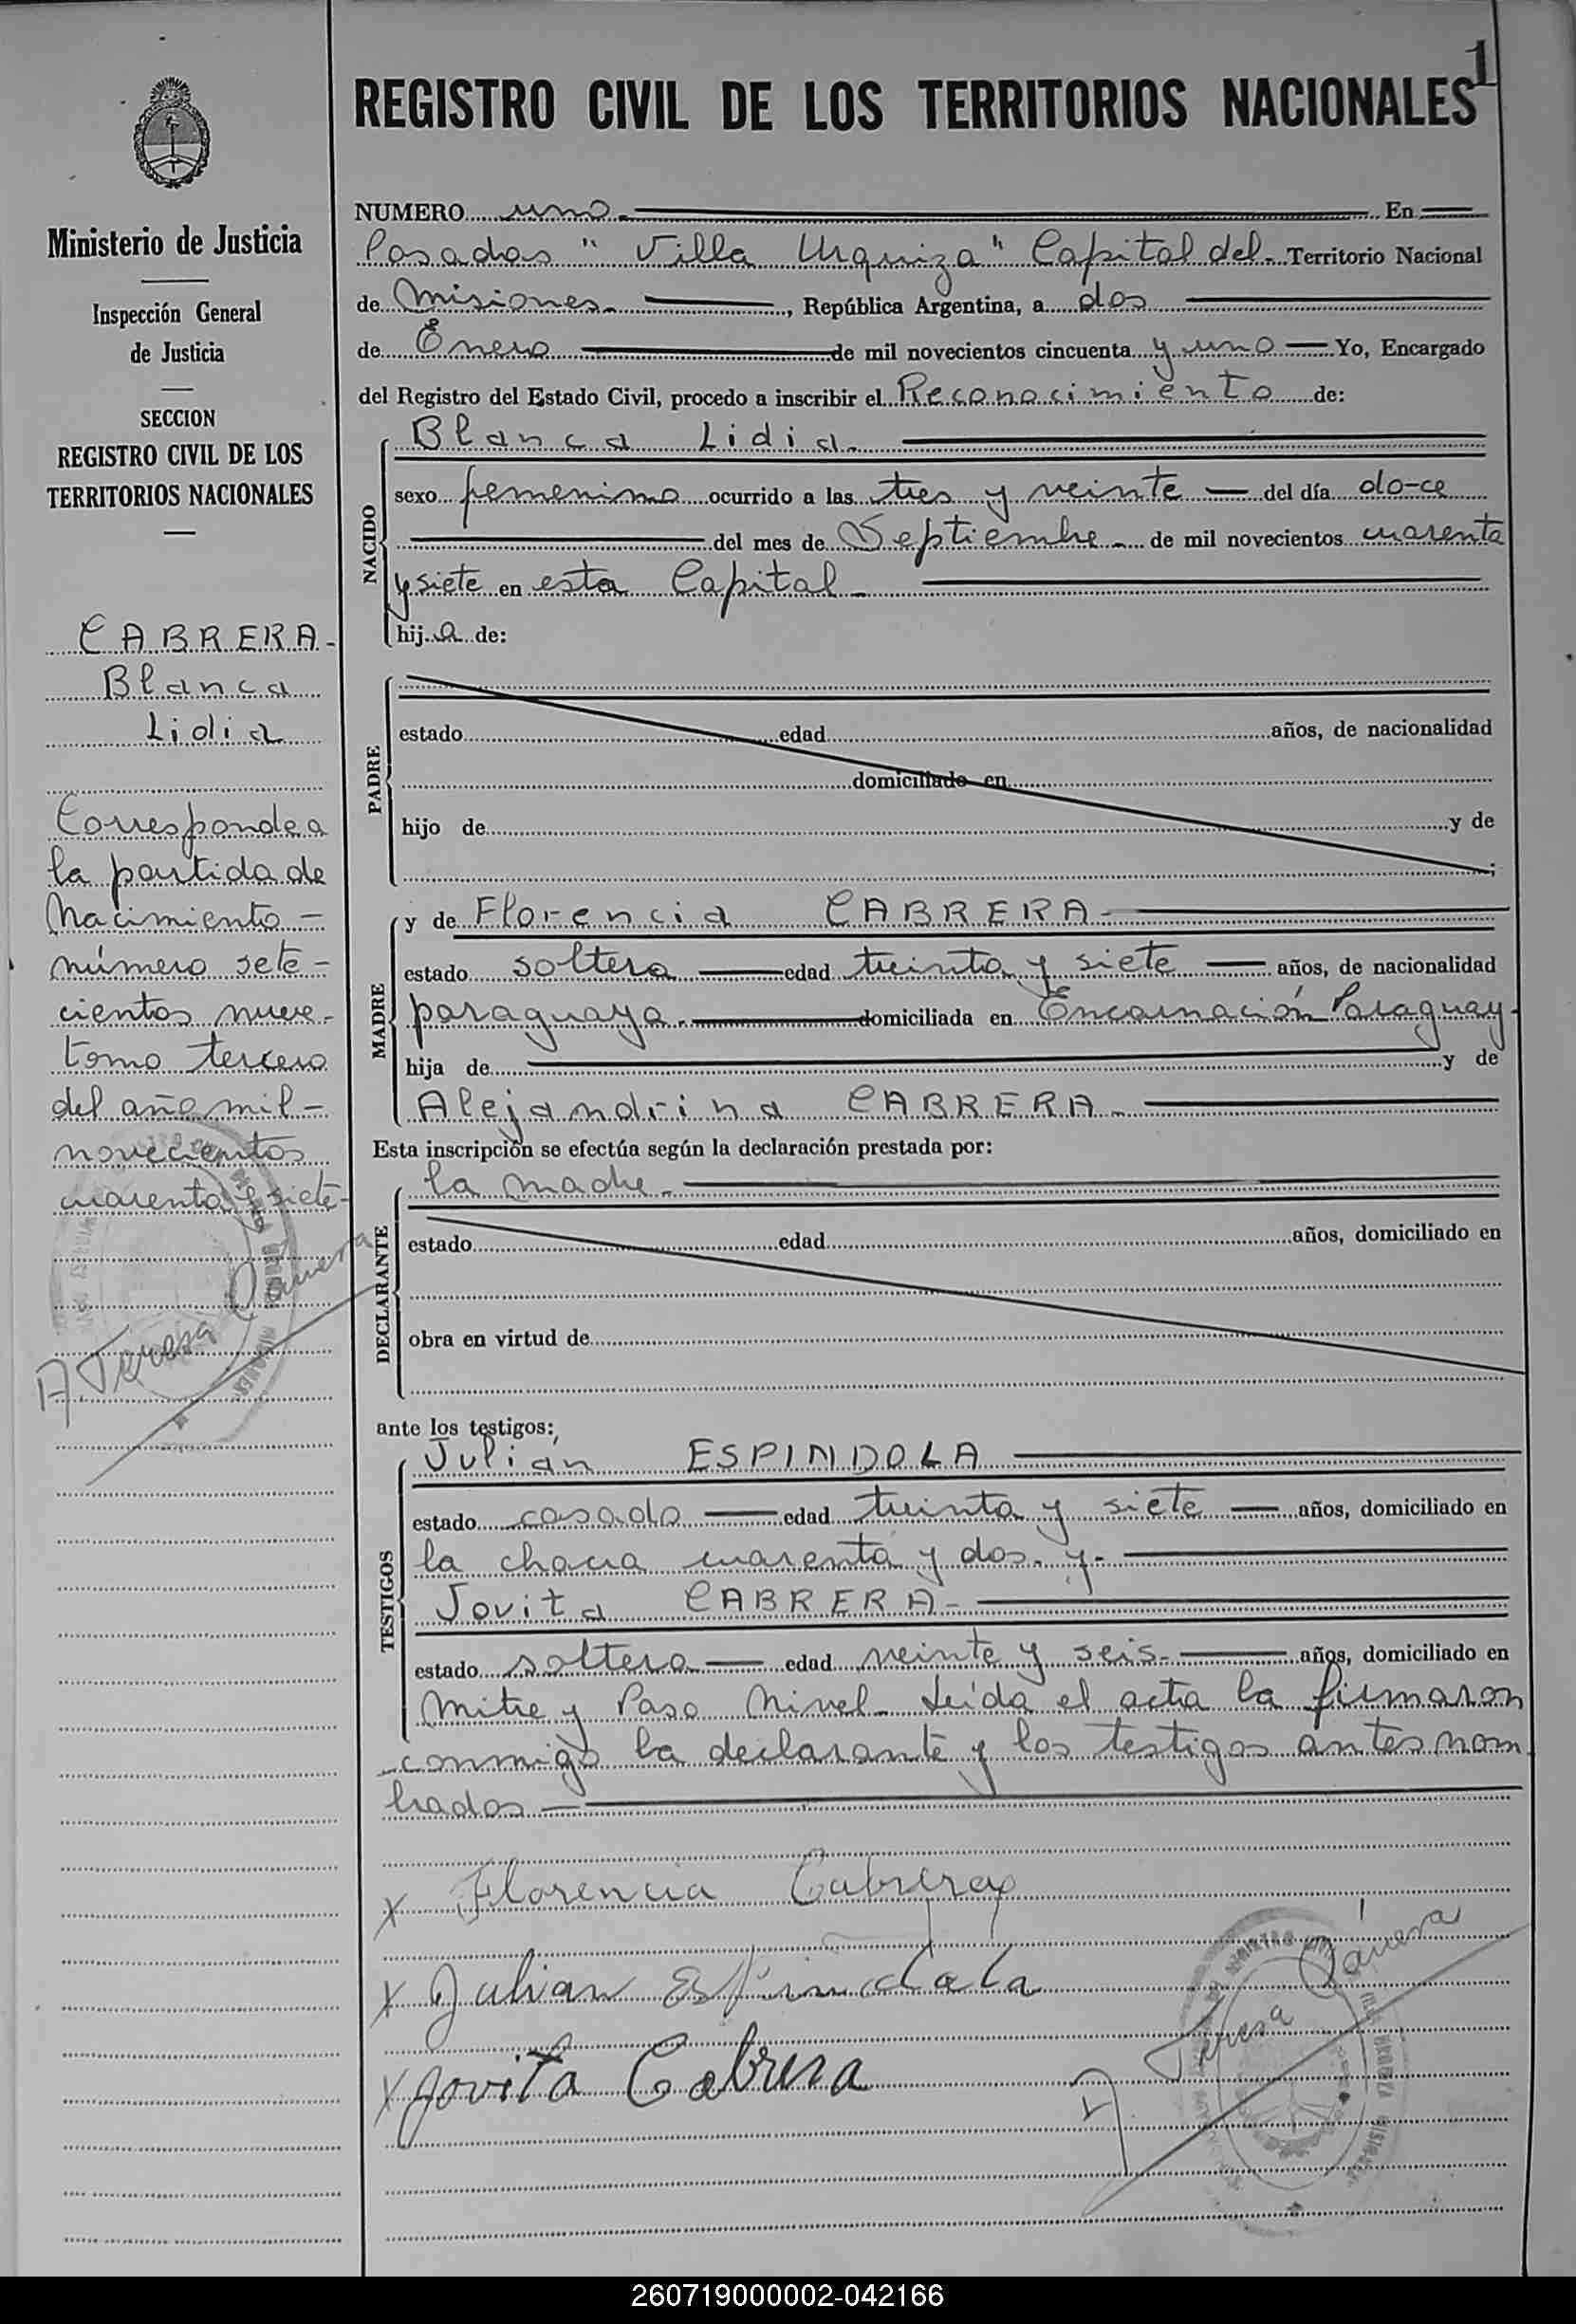 1
REGISTRO CIVIL DE LOS TERRITORIOS NACIONALES
Ministerio de Justicia
Inspección General
de Justicia
SECCION
REGISTRO CIVIL DE LOS
TERRITORIOS NACIONALES
CABRERA-
Blanca
Lidia
Corresponde a
la partida de
Nacimiento-
número sete-
cientos nueve-
tomo tercero
del año mil-
novecientos
cuarenta y siete-
NUMERO uno. En
Posadas "Villa Urquiza" Capital del. Territorio Nacional
de Misiones. , República Argentina, a dos
de Enero de mil novecientos cincuenta y uno Yo, Encargado
del Registro del Estado Civil, procedo a inscribir el Reconocimiento de:
NACIDO
Blanca Lidia.
sexo femenino ocurrido a las tres y veinte del día do-ce
del mes de Septiembre de mil novecientos cuarenta
y siete en esta Capital
hija de:
PADRE
estado edad años, de nacionalidad
domiciliado en
hijo de y de
;
MADRE
y de Florencia CABRERA-
estado soltera edad treinta y siete años, de nacionalidad
paraguaya. domiciliada en Encarnación Paraguay-
hija de y de
Alejandrina CABRERA-
Esta inscripción se efectúa según la declaración prestada por:
DECLARANTE
la madre-
estado edad años, domiciliado en
obra en virtud de
ante los testigos:
TESTIGOS
Julián ESPINDOLA
estado casado edad treinta y siete años, domiciliado en
la chacra cuarenta y dos. y-
Jovita CABRERA-
estado soltera edad veinte y seis- años, domiciliado en
Mitre y Paso Nivel- Leída el acta la firmaron
conmigo la declarante y los testigos antes nom
brados
x Florencia Cabrera
x Julian Espindola
x Jovita Cabrera
260719000002-042166